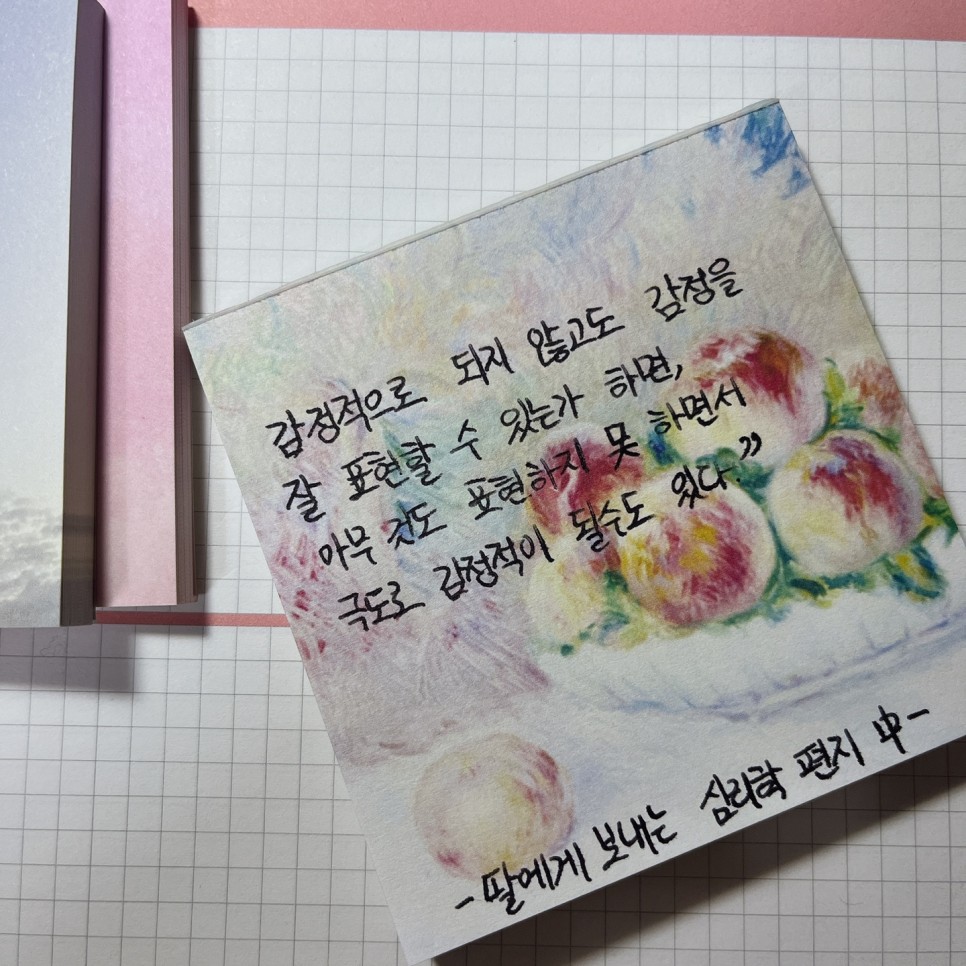 감정적으로 되지 않고도 감정을
잘 표현할 수 있는가 하면,
아무 것도 표현하지 못 하면서
극도로 감정적이 될수도 있다."
-딸에게 보내는 심리학 편지 中-